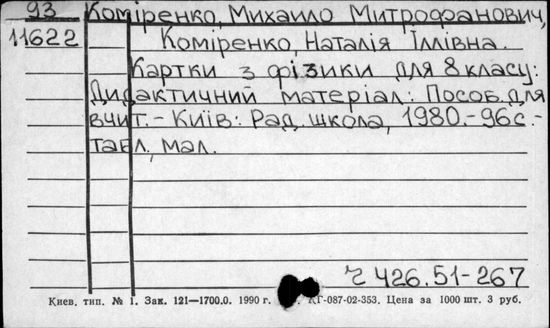 93 Коміренко, Михайло Митрофанович,
11622 Коміренко, Наталія Іллівна.
Картки з фізики для 8 класу:
Дидактичний матеріал: Пособ. для
вчит. - Київ: Рад. школа, 1980.-96с.-
табл., мал.
Ч 426.51-267
Киев. тип. № 1. Зак. 121—1700.0. 1990 г. КГ-087-02-353. Цена за 1000 шт. 3 руб.